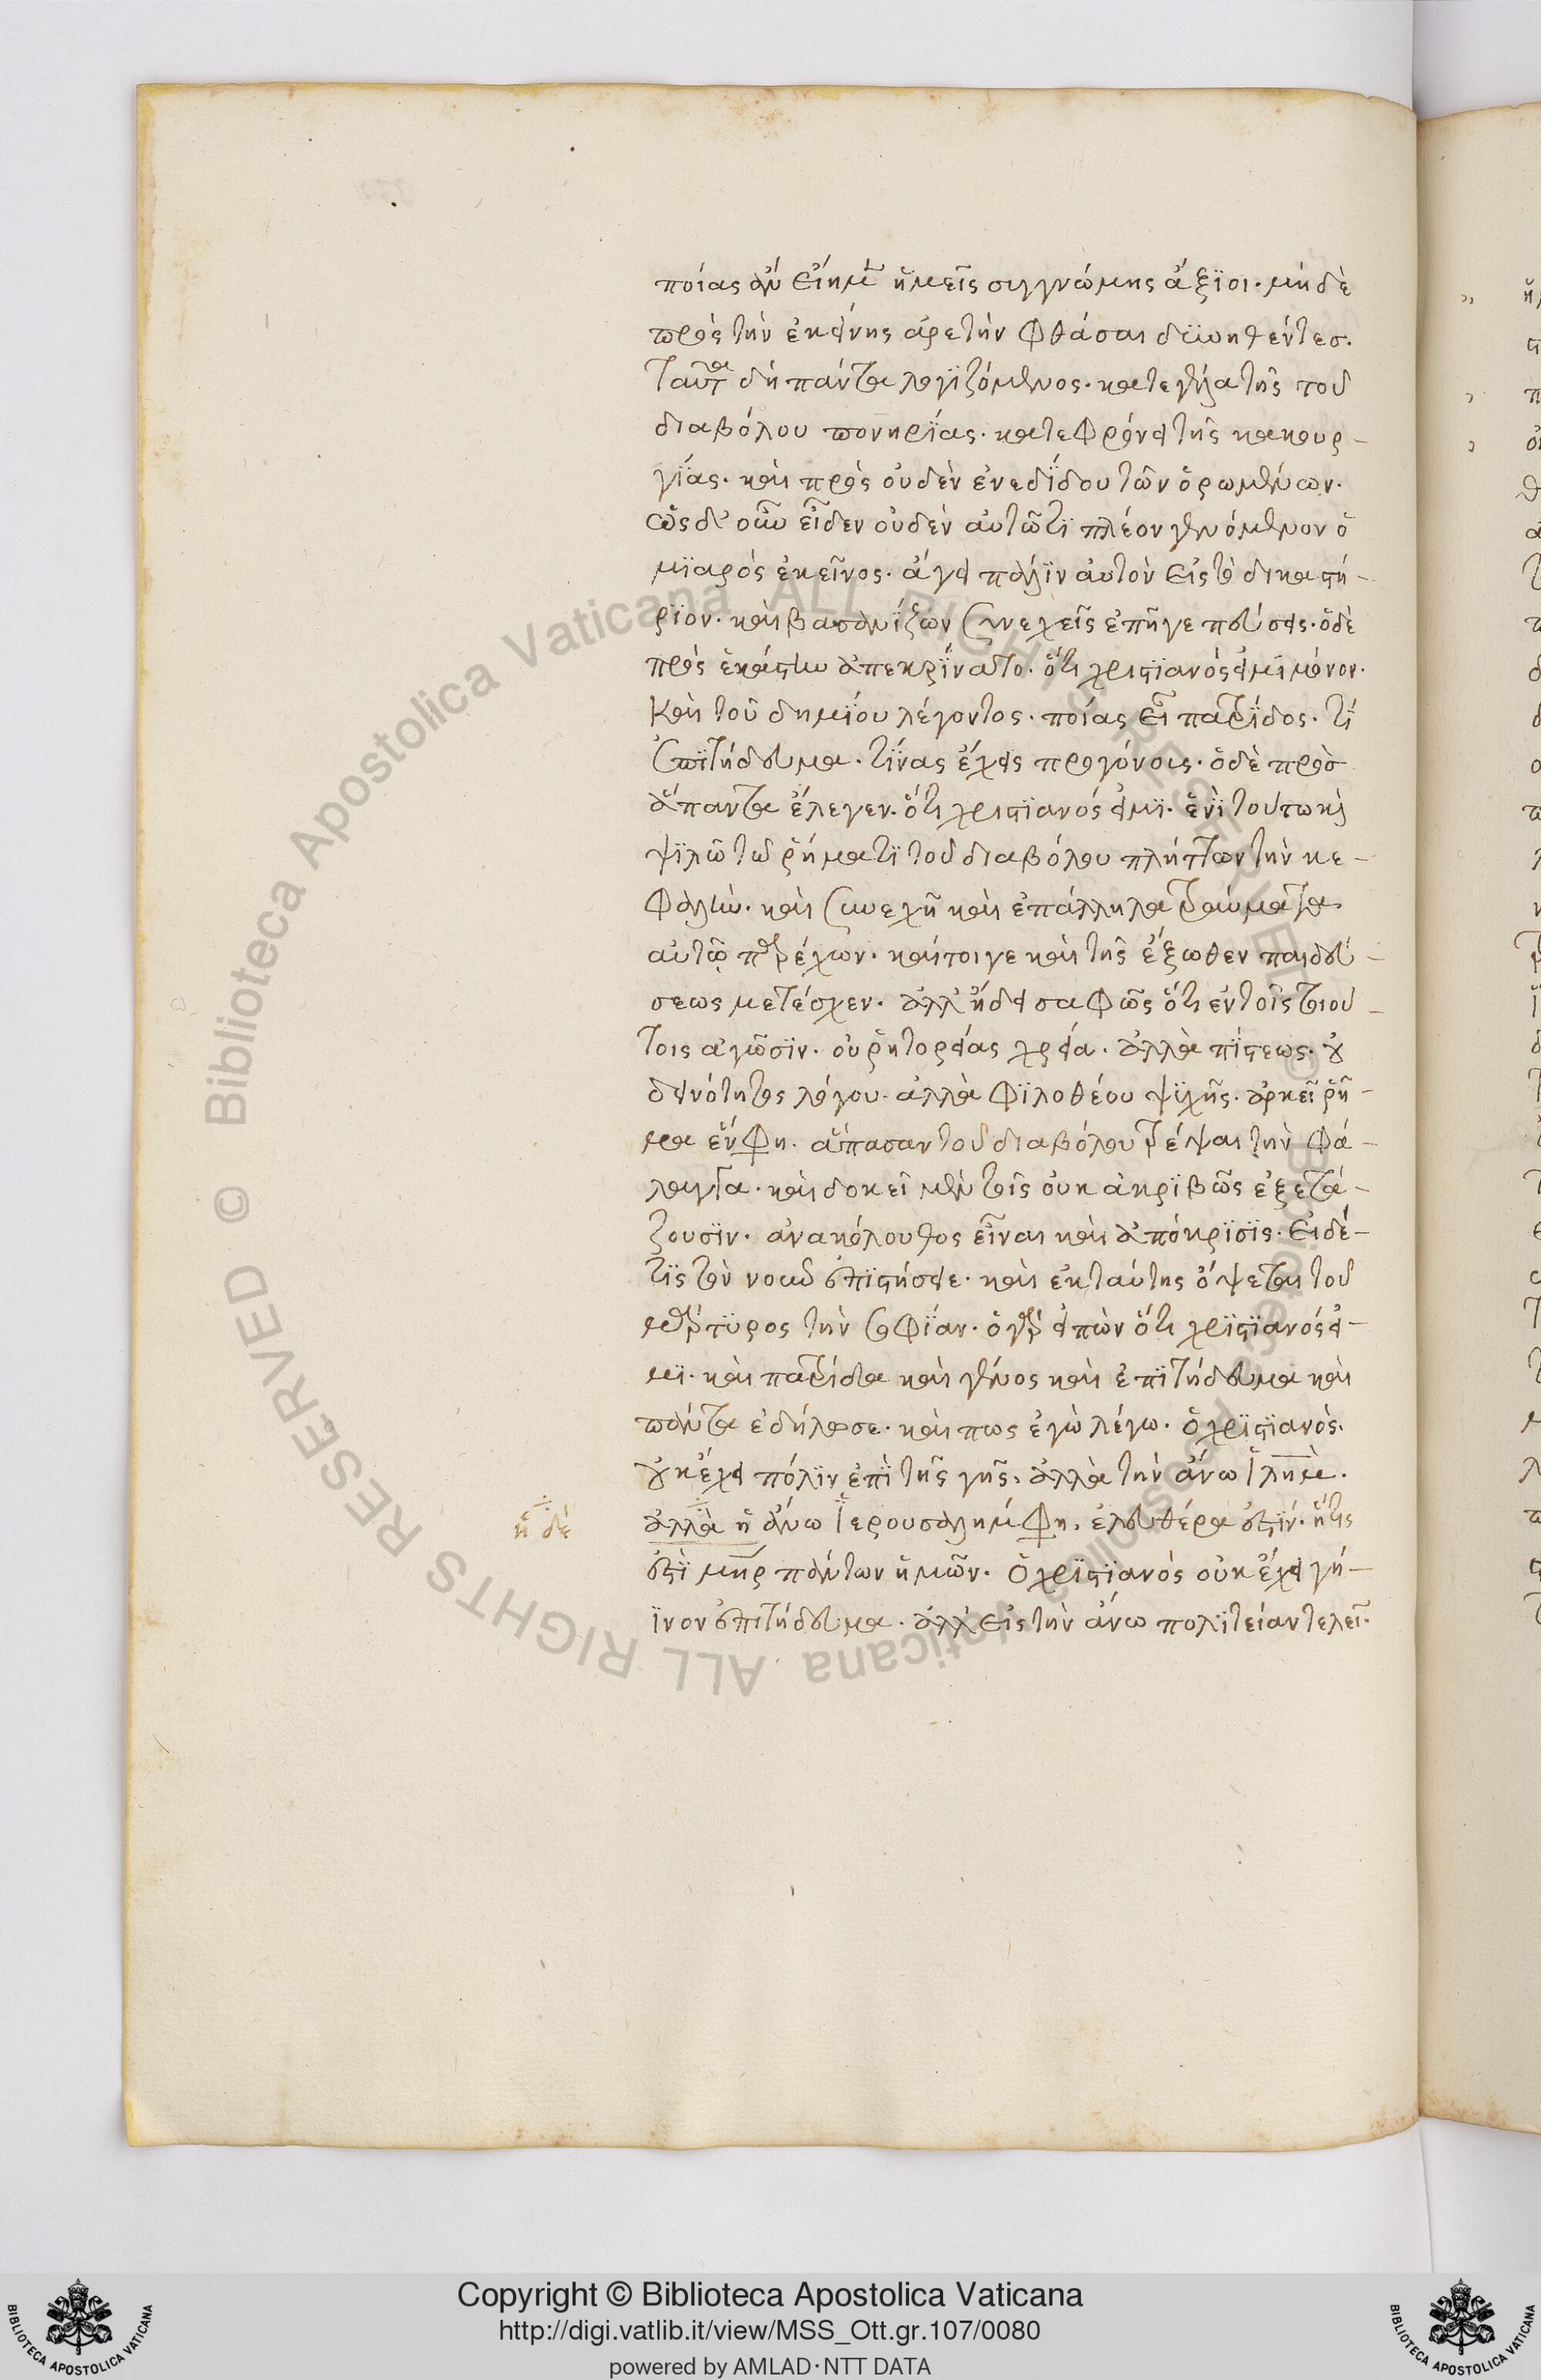 ποίας ἂν εἴημεν ἡμεῖς συγγνώμης ἄξϊοι· μὴ δὲ
πρὸς τὴν ἐκείνης ἀρετὴν φθάσαι δυνηθέντεσ.
ταῦτα δὴ πάντα λογϊζόμενος· κατεγέλα τῆς τοῦ
διαβόλου πονηρίας· κατεφρόνει τῆς κακουρ-
γίας· καὶ πρὸς οὐδὲν ἐνεδίδου τῶν ὁρωμένων.
ὡς δ' οὖν εἶδεν οὐδὲν αὐτῶ τϊ πλέον γενόμενον ὁ
μϊαρὸς ἐκεῖνος· ἄγει πάλϊν αὐτὸν εἰς τὸ δικαστή-
ρϊον· καὶ βασανίζων συνεχεῖς ἐπῆγε πεύσεις· ὁ δὲ
πρὸς ἑκάστην ἀπεκρίνατο· ὅτι χριστϊανός εἰμϊ μόνον.
Καὶ τοῦ δημίου λέγοντος· ποίας εἶ πατρίδος· τί
ἐπϊτήδευμα· τίνας ἔχεις προγόνους· ὁ δὲ πρὸσ
ἅπαντα ἔλεγεν· ὅτι χριστϊανός εἰμϊ· ἑνὶ τούτω καὶ
ψϊλῶ τῶ ῥήματϊ τοῦ διαβόλου πλήττων τὴν κε-
φαλὴν· καὶ συνεχῆ καὶ ἐπάλληλα τραύματα
αὐτῷ παρέχων· καίτοιγε καὶ τῆς ἔξωθεν παιδεύ-
σεως μετέσχεν· ἀλλ' ᾔδει σαφῶς ὅτι ἐν τοῖς τοιού-
τοις ἀγῶσϊν· οὐ ῥητορείας χρεία· ἀλλὰ πίστεως· οὐ
δεινότητος λόγου· ἀλλὰ φϊλοθέου ψϋχῆς· ἀρκεῖ ῥῆ-
μα ἕν φη· ἅπασαν τοῦ διαβόλου τρέψαι τὴν φά-
λαγγα· καὶ δοκεῖ μὲν τοῖς οὐκ ἀκρϊβῶς ἐξετά-
ζουσϊν· ἀνακόλουθος εἶναι καὶ ἀπόκρϊσϊς· εἰ δέ
τϊς τὸν νοῦν ἐπϊστήσειε· καὶ ἐκ ταύτης ὄψεται τοῦ
μάρτϋρος τὴν σοφίαν· ὁ γὰρ εἰπὼν ὅτι χρϊστϊανός εἰ-
μϊ· καὶ πατρίδα καὶ γένος καὶ ἐπϊτήδευμα καὶ
πάντα ἐδήλωσε· καὶ πως ἐγὼ λέγω· ὁ χρϊστϊανὸς.
οὐκ ἔχει πόλϊν ἐπὶ τῆς γῆς, ἀλλὰ τὴν ἄνω ἱλημ.
ἡ δὲ
ἀλλὰ ἡ ἄνω Ἱερουσαλημ φη, ἐλευθέρα ἐστϊν· ἥτις
ἐστὶ μηρ πάντων ἡμῶν· Ὁ χρϊστϊανὸς οὐκ ἔχει γή-
ϊνον ἐπιτήδευμα· ἀλλ' εἰς τὴν ἄνω πολϊτείαν τελεῖ.
Copyright © Biblioteca Apostolica Vaticana
http://digi.vatlib.it/view/MSS_Ott.gr.107/0080
powered by AMLAD·NTT DATA